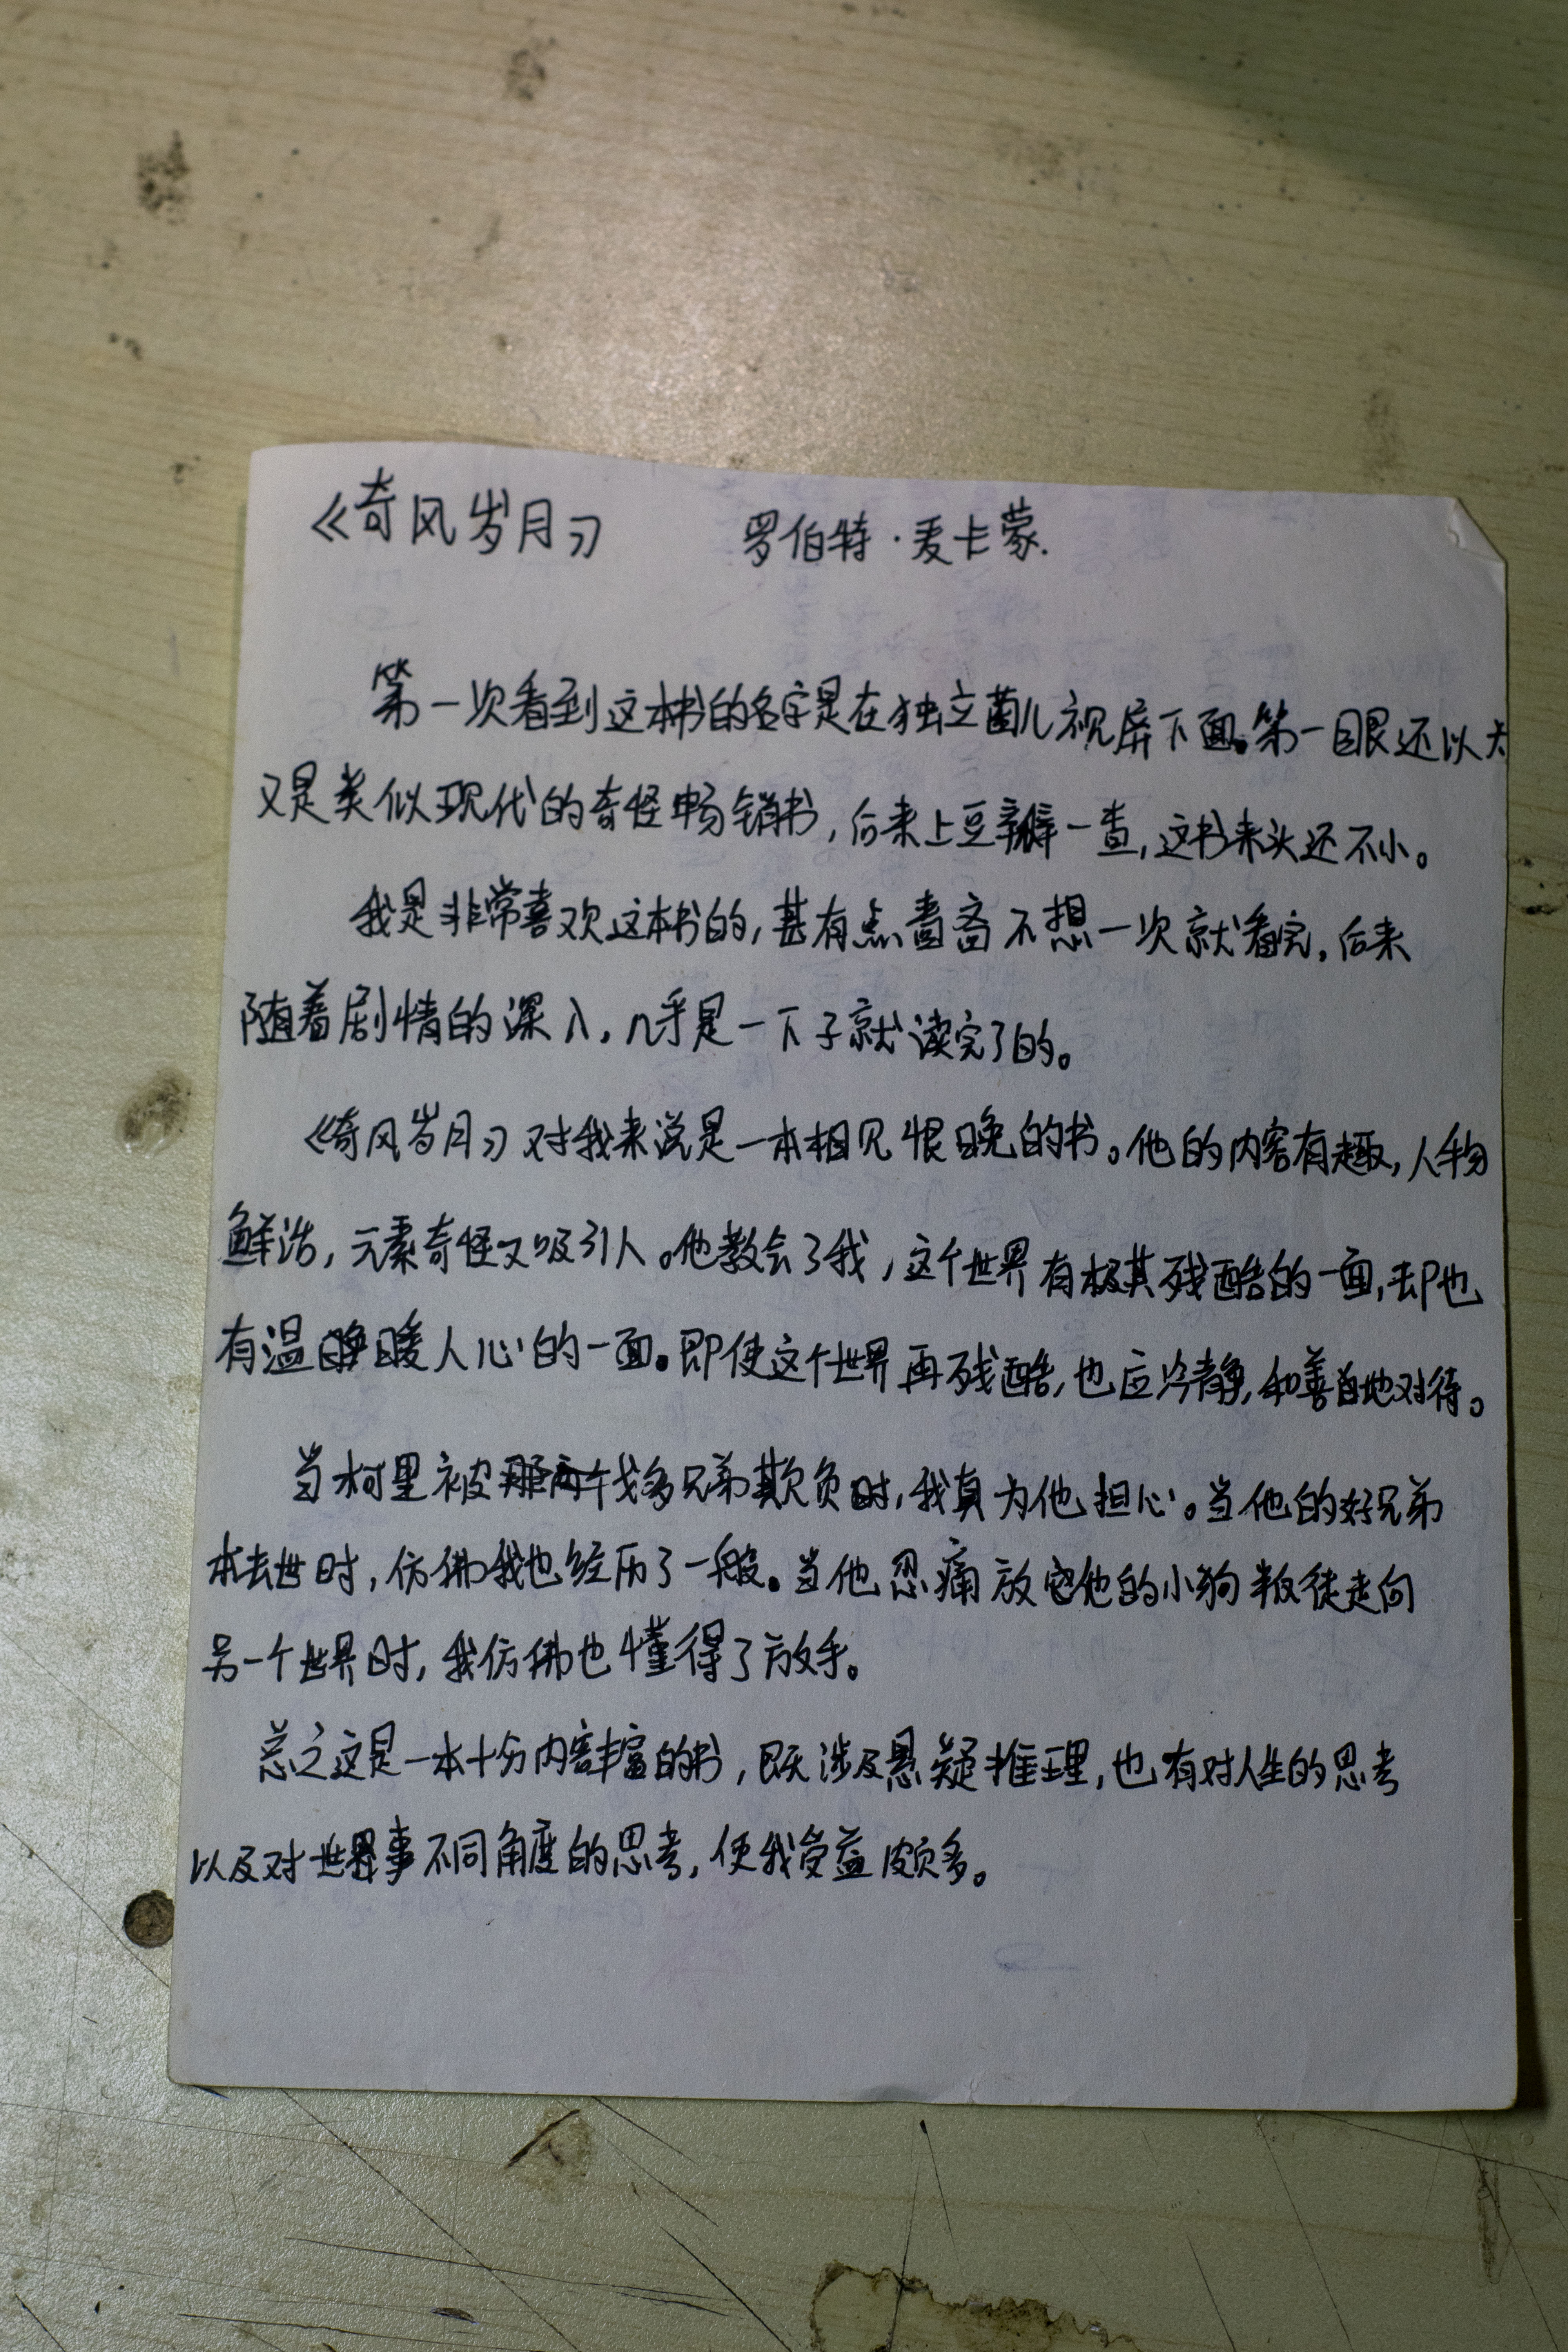 《奇风岁月》 罗伯特·麦卡蒙.
第一次看到这本书的名字是在独立菌儿视屏下面。第一眼还以为
又是类似现代的奇怪畅销书,后来上豆瓣一查,这书来头还不小。
我是非常喜欢这本书的,甚有点啬啬不想一次就看完,后来
随着剧情的深入,几乎是一下子就读完了的。
《奇风岁月》对我来说是一本相见恨晚的书。他的内容有趣,人物
鲜活,元素奇怪又吸引人。他教会了我,这个世界有极其残酷的一面,却也
有温暖人心的一面。即使这个世界再残酷,也应冷静,和善自地对待。
当柯里被那两个戈多兄弟欺负时,我真为他担心。当他的好兄弟
本去世时,仿佛我也经历了一般。当他忍痛放它他的小狗叛徒走向
另一个世界时,我仿佛也懂得了放手。
总之这是一本十分内容丰富的书,既涉及悬疑推理,也有对人生的思考
以及对世界事不同角度的思考,使我受益颇多。